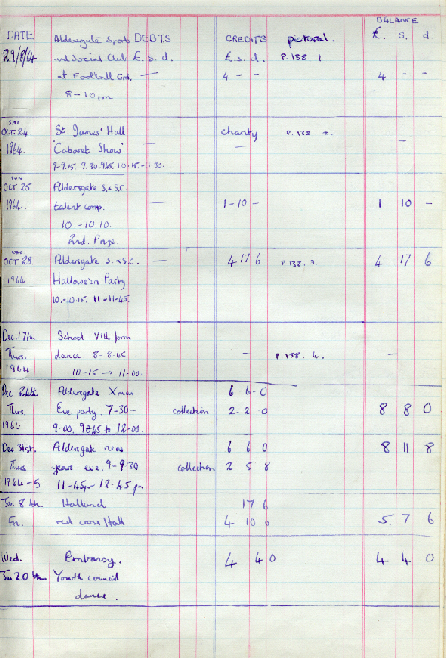 BALANCE
DATE Aldersgate Sports DEBITS CREDITS pictures. £. s. d
29/8/64 and Social Club £. s. d. £. s. d. P.138 1
at Football Grd. — — 4 - — 4 — —
8 - 10 pm
OCT 24 St James' Hall charity P.138 2.
1964. 'Cabaret Show' — —
OCT 25 Aldersgate S. & S.C.
1964. talent comp. — 1-10- 1 10 —
10 - 10.10
2nd. Prize
OCT 28 Aldersgate S. & S.C. — 4 17 6 P.138. 3 4 17 6
1964 Hallowe'en Party
10.-10.15. 11-11.45.
Dec. 17th School VIth form
Thurs. dance 8-8.45 — P.138. 4. —
1964 10.15 - 11.00.
Dec Aldersgate Xmas 6 6-0
Thurs. Eve party. 7-30- collection 2-2-0 8 8 0
9.00. 9.45 to 12.00.
Dec 31st. Aldersgate new 6 6 0 8 11 8
Thurs years eve. 9-9.30 collection 2 5 8
1964-5 11-45pm - 12.45 pm
Jan. 8th Halland 17 6
Fri. red cross Hall 4- 10 0 5 7 6
Wed. Embassy. 4 4 0 4 4 0
Jan 20th Youth council
dance.